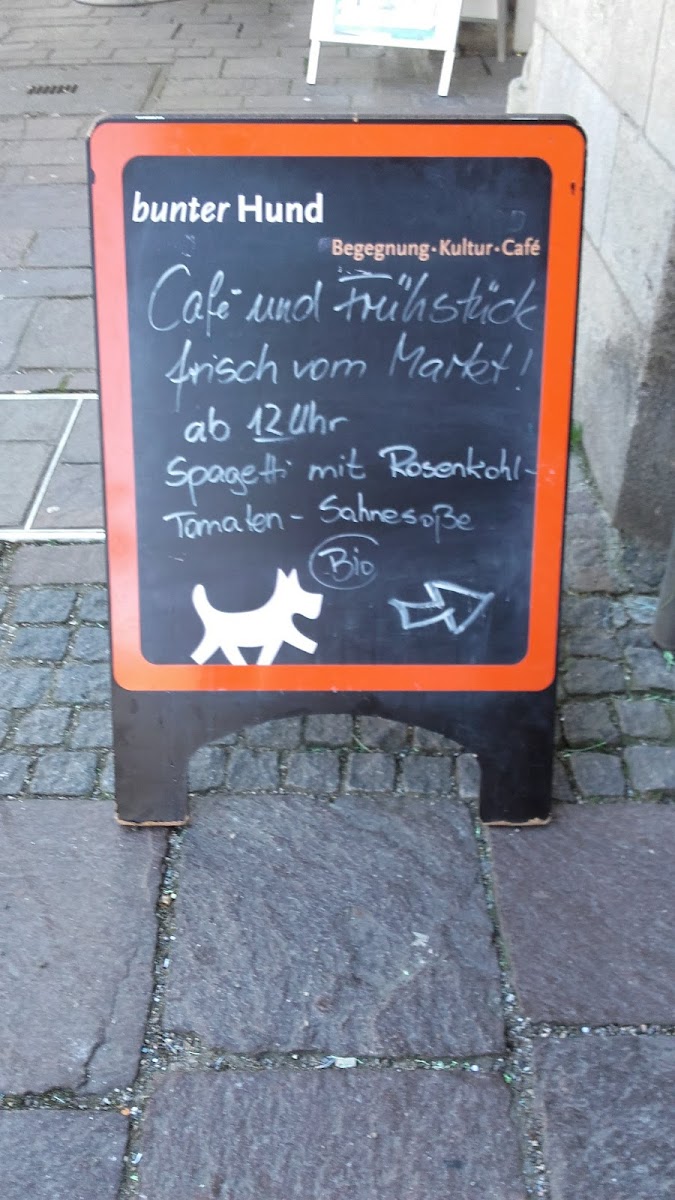 bunter Hund
Begegnung·Kultur·Café
Café und Frühstück
frisch vom Markt!
ab 12 Uhr
Spagetti mit Rosenkohl-
Tomaten-Sahnesoße
Bio